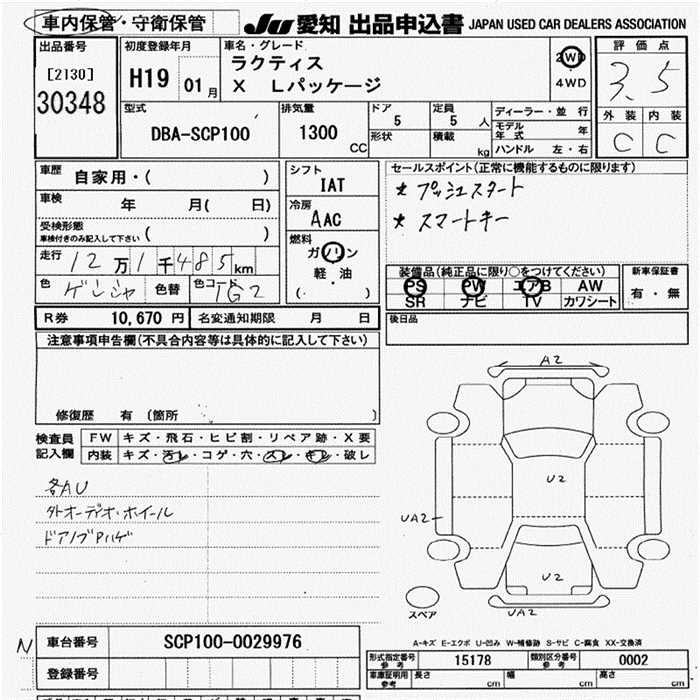 車内保管・守衛保管 JU 愛知 出品申込書 JAPAN USED CAR DEALERS ASSOCIATION
出品番号 初度登録年月 車名・グレード 評価点
[2130] H19 01月 ラクティス 2WD 3.5
30348 X Lパッケージ 4WD
外装 内装
型式 排気量 ドア 定員 ディーラー・並行 C C
DBA-SCP100 1300 CC 5 5 人 モデル年式 年
形状 積載 kg ハンドル 左・右
車歴 自家用・( ) シフト IAT セールスポイント(正常に機能するものに限ります)
車検 年 月( 日) 冷房 AAC ★プッシュスタート
受検形態 車検付きのみ記入して下さい ( ) 燃料 ガソリン ★スマートキー
走行 12万1千485km 軽・油
色 ゲンシャ 色替 色コード 1G2 (・ )
装備品(純正品に限り○をつけてください) 新車保証書
PS PW エアB AW 有・無
SR ナビ TV カワシート
R券 10,670円 名変通知期限 月 日 後日品
注意事項申告欄(不具合内容等は具体的に記入して下さい)
修復歴 有 〔箇所 〕
検査員記入欄 FW キズ・飛石・ヒビ割・リペア跡・X要
内装 キズ・汚レ・コゲ・穴・スレ・キレ・破レ
各AU
外オーディオ・ホイール
ドアノブPハゲ
A2
U2
UA2
U2
UA2
スペア
A-キズ E-エクボ U-凹み W-補修跡 S-サビ C-腐食 XX-交換済
N 車台番号 SCP100-0029976
登録番号
形式指定番号 参考 15178 類別区分番号 参考 0002
車庫証明用 参考 長さ cm 幅 cm 高さ cm